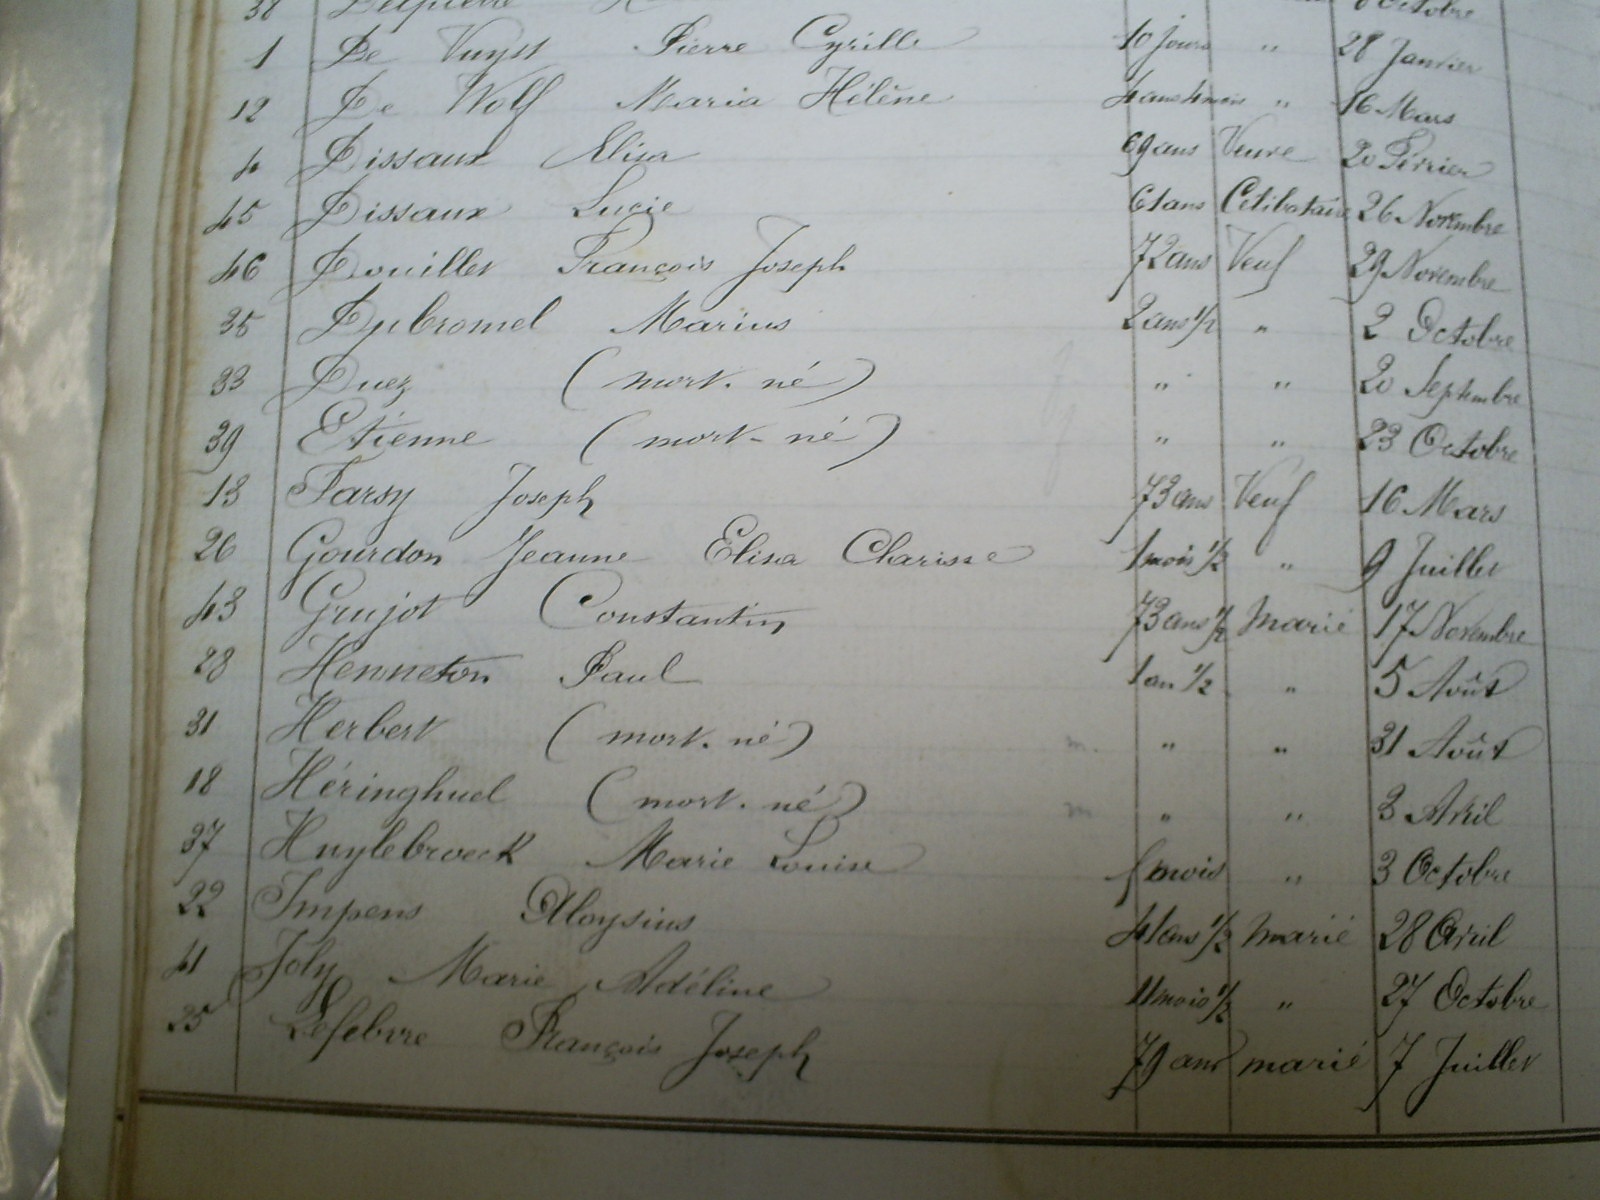 38 Octobre
1 De Vuyst Pierre Cyrille 10 jours " 28 Janvier
12 De Wolf Maria Hélène 4 ans 4 mois " 16 Mars
4 Dissaux Elisa 69 ans Veuve 20 Février
45 Dissaux Lucie 61 ans Célibataire 26 Novembre
46 Douillet François Joseph 72 ans Veuf 29 Novembre
35 Dubromel Marius 2 ans 1/2 " 2 Octobre
33 Duez (mort-né) " " 20 Septembre
39 Etienne (mort-né) " " 23 Octobre
13 Farsy Joseph 73 ans Veuf 16 Mars
26 Gourdon Jeanne Elisa Clarisse 1 mois 1/2 " 9 Juillet
43 Grujot Constantin 73 ans 1/2 marié 17 Novembre
28 Henneton Paul 1 an 1/2 " 5 Août
31 Herbert (mort-né) m. " " 31 Août
18 Héringhuel (mort-né) m " " 3 Avril
37 Huylebroeck Marie Louise mois " 3 Octobre
22 Impens Aloysius 41 ans 1/2 marié 28 Avril
41 Joly Marie Adéline 11 mois 1/2 " 27 Octobre
25 Lefebvre François Joseph 79 ans marié 7 Juillet